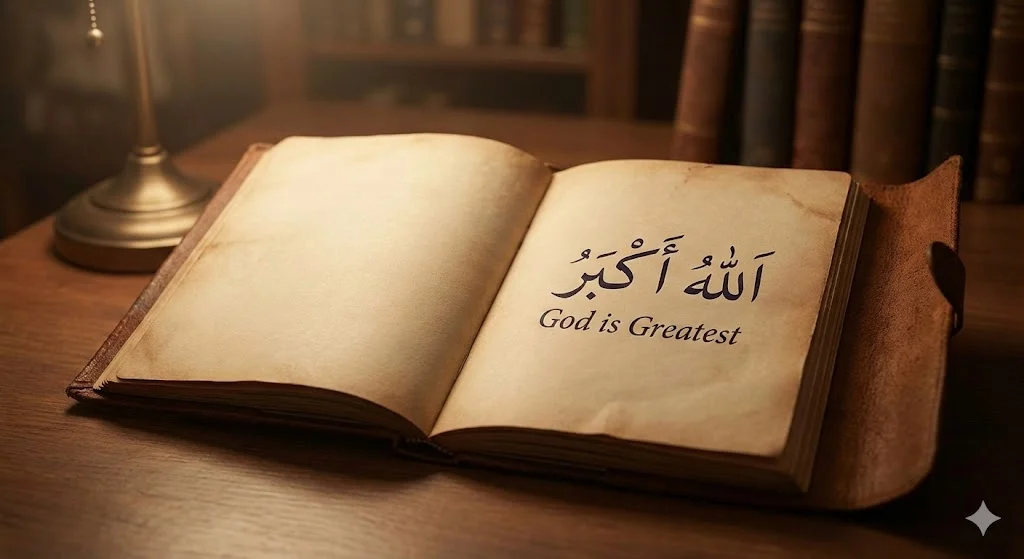 اَللّٰهُ أَكْبَرُ
God is Greatest